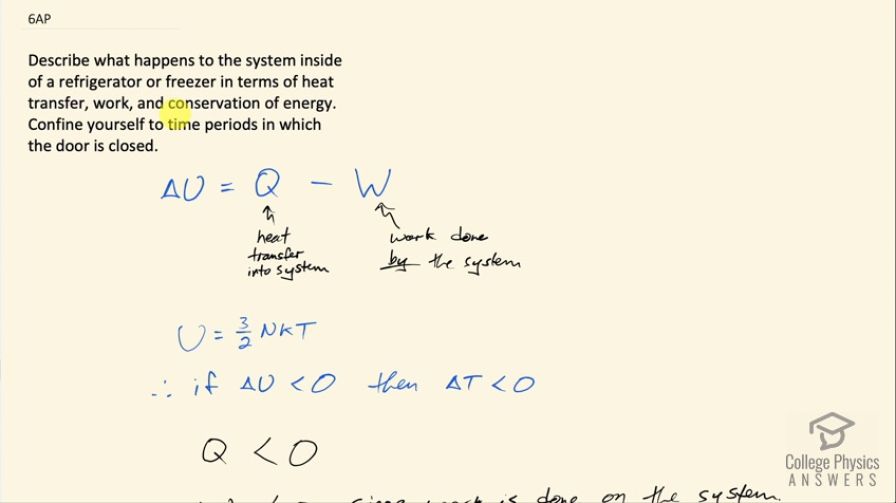 6AP
Describe what happens to the system inside
of a refrigerator or freezer in terms of heat
transfer, work, and conservation of energy.
Confine yourself to time periods in which
the door is closed.
ΔU = Q - W
heat
transfer
into system
work done
by the system
U = 3/2 NkT
∴ if ΔU < 0 then ΔT < 0
Q < 0
since work is done on the system.
College Physics
ANSWERS